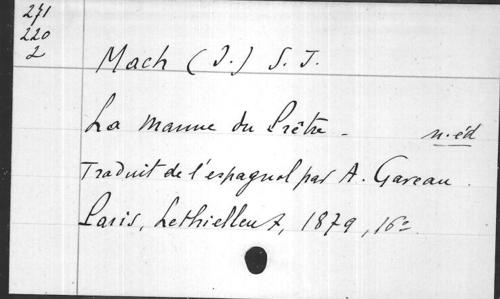 271
220
2
Mach (J.) S. J.
La manne du Prêtre - n. éd
Traduit de l'espagnol par A. Gareau.
Paris, Lethielleux, 1879, 16º